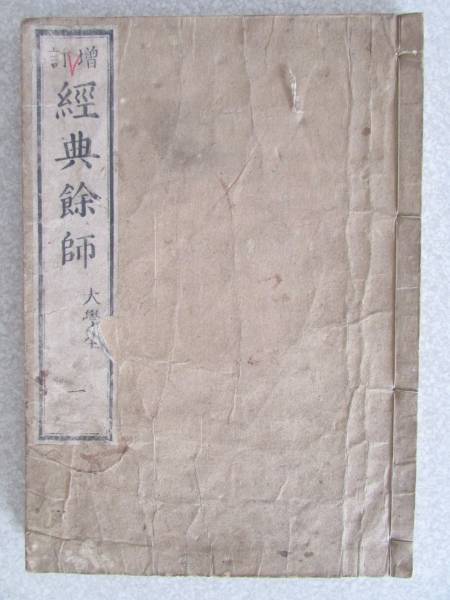 増訂
經典餘師
大學
一